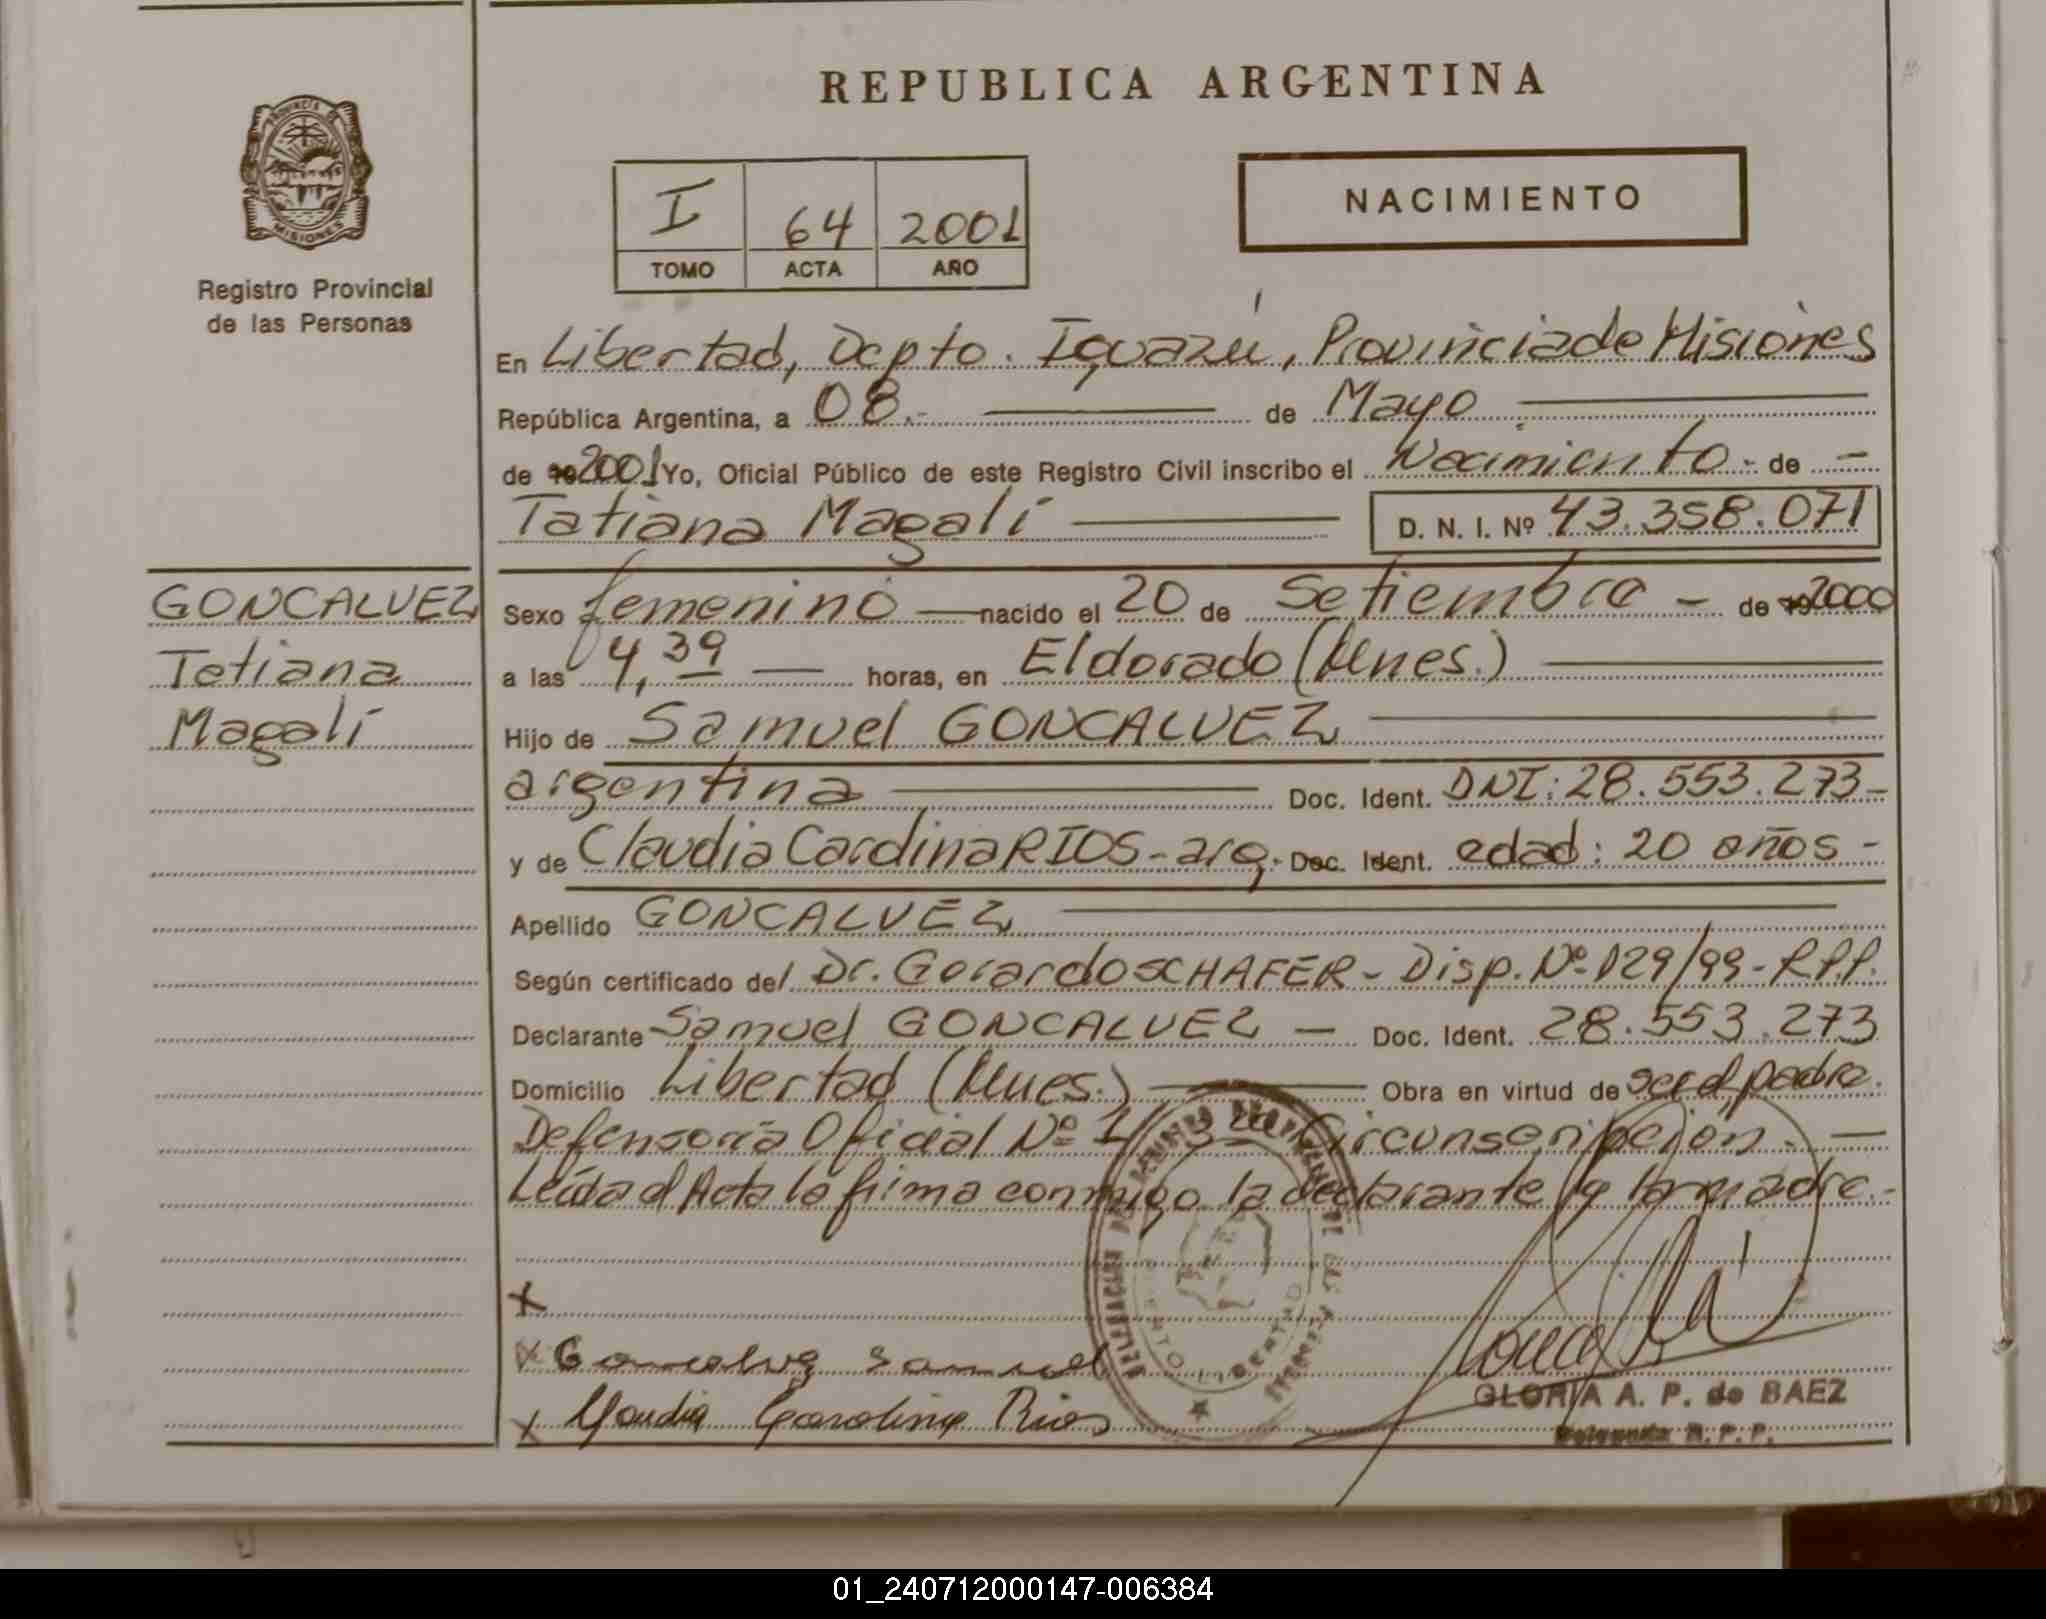 REPUBLICA ARGENTINA
PROVINCIA DE
MISIONES
Registro Provincial
de las Personas
I 64 2001
TOMO ACTA AÑO
NACIMIENTO
En Libertad, Depto. Iguazú, Provincia de Misiones
República Argentina, a 08.- de Mayo
de 19 2001 Yo, Oficial Público de este Registro Civil inscribo el Nacimiento - de -
Tatiana Magalí D. N. I. Nº 43.358.071
GONCALVEZ
Tatiana
Magalí
Sexo femenino nacido el 20 de Setiembre - de 19 2000
a las 4,39 horas, en Eldorado (Mnes.)
Hijo de Samuel GONCALVEZ
argentina Doc. Ident. DNI: 28.553.273-
y de Claudia Carolina RIOS - arg. Doc. Ident. edad: 20 años -
Apellido GONCALVEZ
Según certificado del Dr. Gerardo SCHAFER - Disp. Nº 129/99 - R.P.P.
Declarante Samuel GONCALVEZ - Doc. Ident. 28.553.273
Domicilio Libertad (Mnes.) Obra en virtud de ser el padre.
Defensoría Oficial Nº 1 Circunscripción. -
Leída el Acta la firma conmigo la declarante y la madre.-
X
X Goncalvez Samuel
X Claudia Carolina Rios
GLORIA A. P. de BAEZ
Delegada R. P. P.
01_240712000147-006384